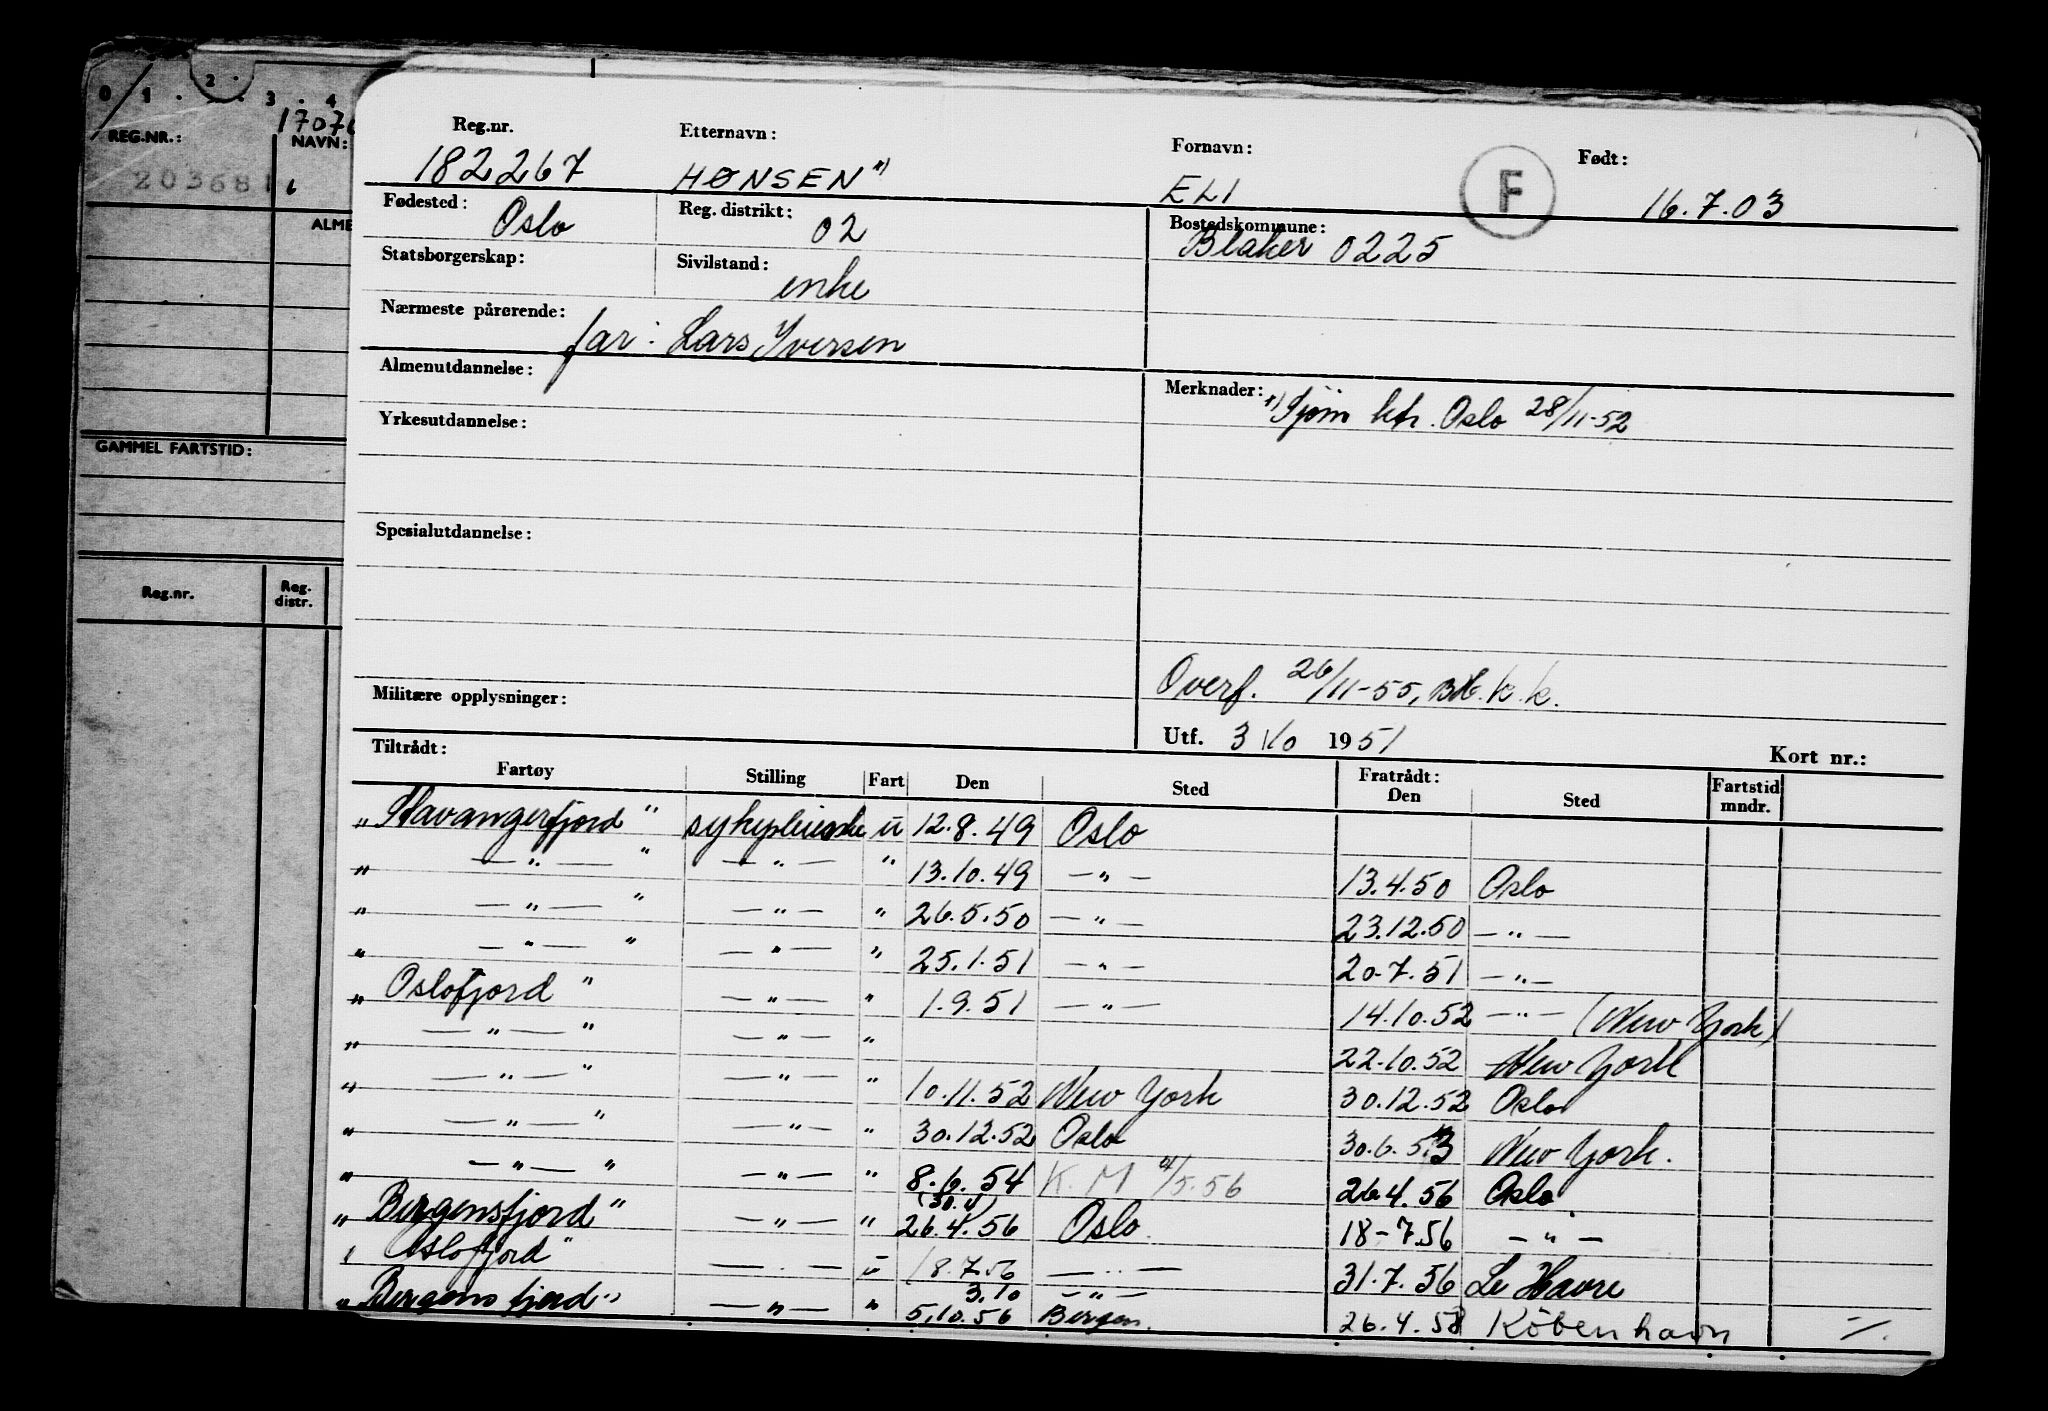 0 1 . 2 . 3 . 4
REG.NR.:
NAVN:
203681
ALME
GAMMEL FARTSTID:
Reg.nr.
Reg. distr.
Reg.nr. Etternavn: Fornavn: Født:
182267 HØNSEN ") ELI F 16.7.03
Fødested: Oslo Reg. distrikt: 02 Bostedskommune: Blaker 0225
Statsborgerskap: Sivilstand: enke
Nærmeste pårørende: far: Lars Iversen
Almenutdannelse: Merknader: ") Sjøm ktr. Oslo 28/11-52
Yrkesutdannelse:
Spesialutdannelse:
Overf. 26/11-55, k.k.
Militære opplysninger:
Utf. 3/10 1951 Kort nr.:
Tiltrådt: Fratrådt:
Fartøy Stilling Fart Den Sted Den Sted Fartstid mndr.
"Stavangerfjord" sykepleierske u 12.8.49 Oslo
" — " — " — " — " 13.10.49 — " — 13.4.50 Oslo
" — " — " — " — " 26.5.50 — " — 23.12.50 — " —
" — " — " — " — " 25.1.51 — " — 20.7.51 — " —
" Oslofjord " — " — " 1.9.51 — " — 14.10.52 — " — (New York)
" — " — " — " — " 22.10.52 New York
" — " — " — " — " 10.11.52 New York 30.12.52 Oslo
" — " — " — " — " 30.12.52 Oslo 30.6.53 New York.
" — " — " — " — " 8.6.54 K. M 4/5.56 26.4.56 Oslo
" Bergensfjord " — " — " (30.4) 26.4.56 Oslo. 18-7.56 — " —
" Oslofjord " — " — u 18.7.56 — " — 31.7.56 Le Havre
" Bergensfjord " — " — " 3.10 — " —
5.10.56 Bergen. 26.4.58 København ./.